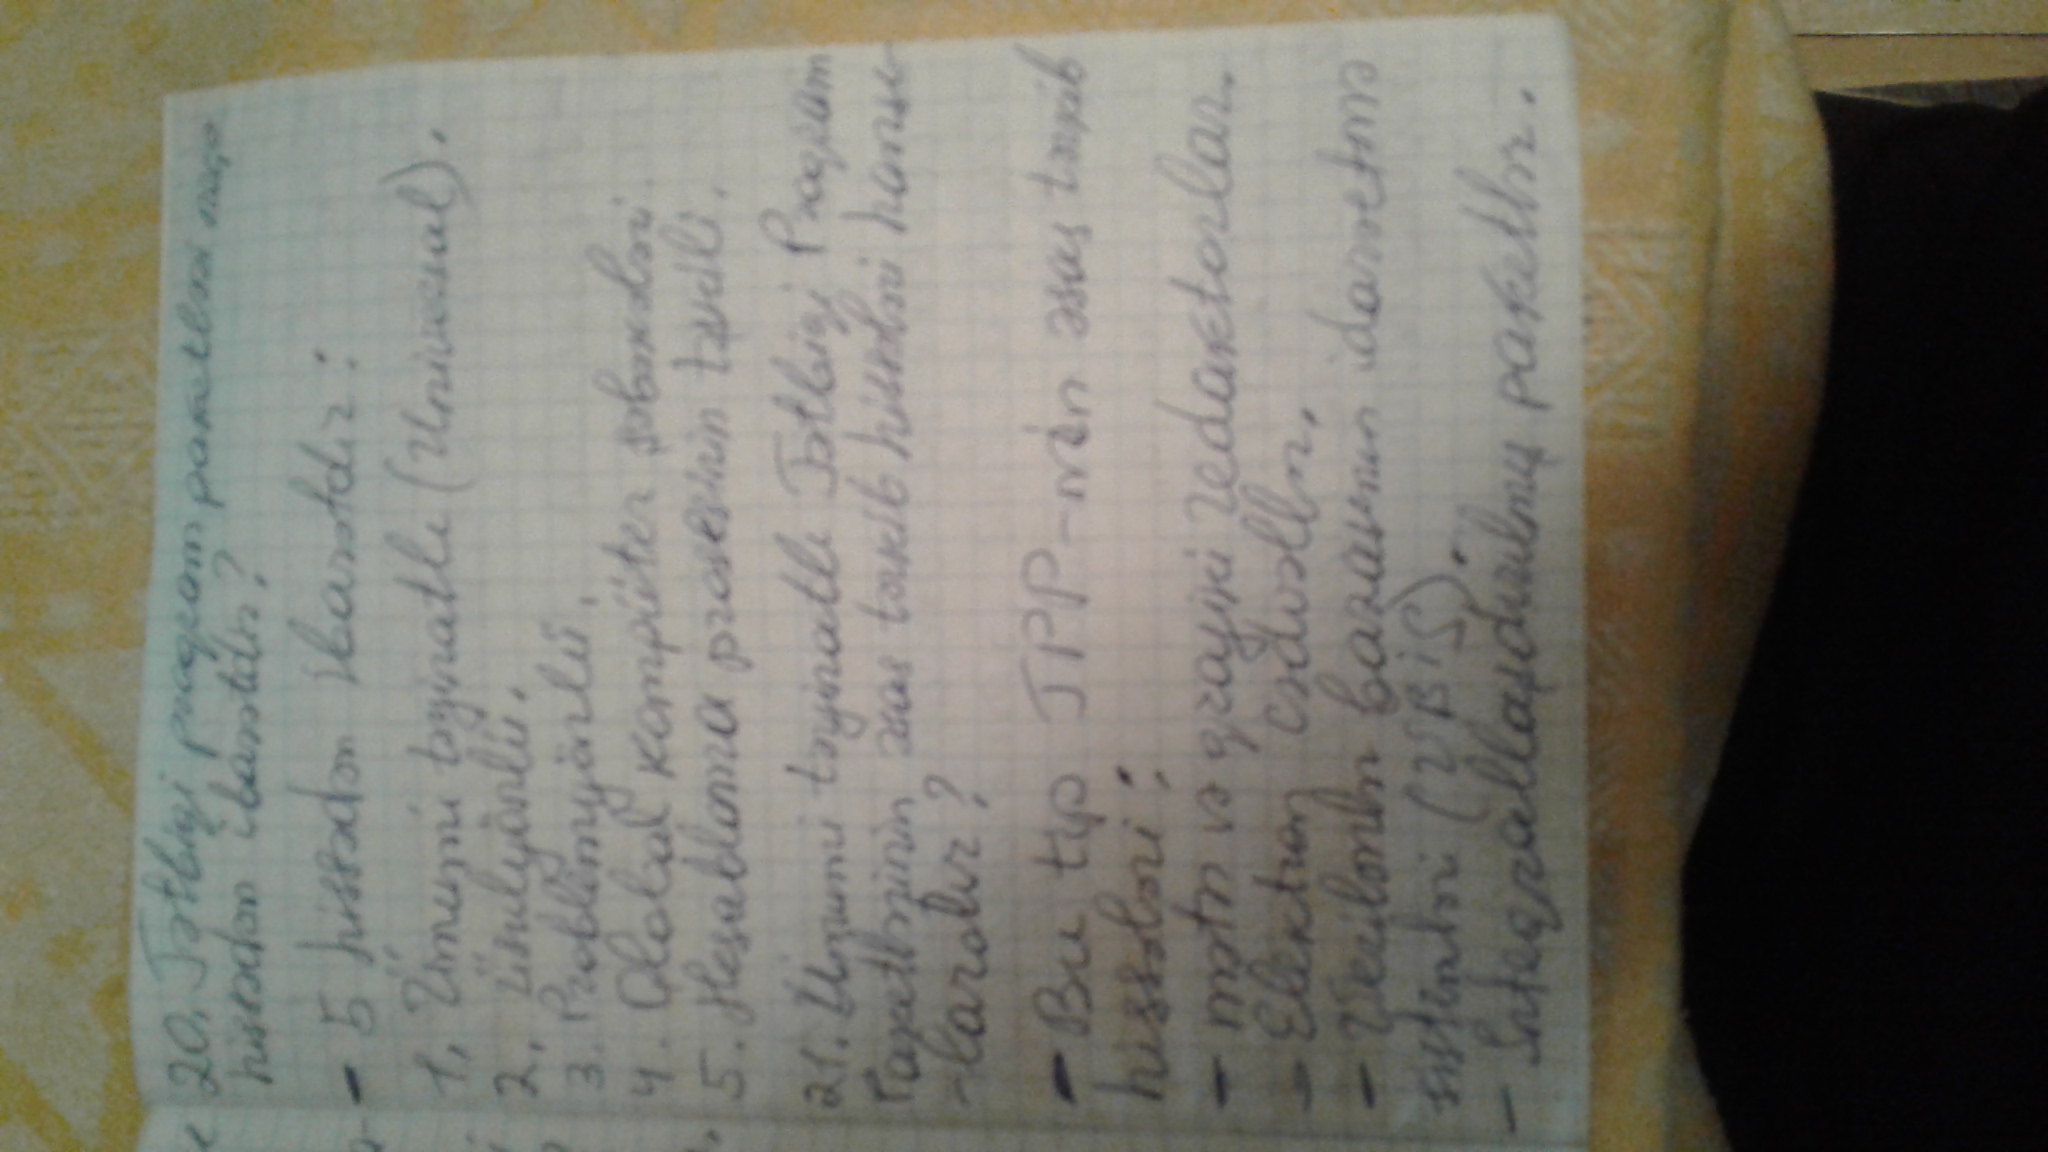 20. Tətbiqi proqram paketləri neçə
hissədən ibarətdir?
- 5 hissədən ibarətdir:
1. Ümumi təyinatlı (Universal).
2. üsulyönlü.
3. Problemyönlü.
4. Qlobal kompüter şəbəkələri.
5. Hesablama prosesinin təşkili.
21. Ümumi təyinatlı Tətbiqi Proqram
Paketlərinin əsas tərkib hissələri hansı-
-lardır?
- Bu tip TPP-nin əsas tərkib
hissələri:
- mətn və qrafiki redaktorlar.
- Elektron cədvəllər.
- Verilənlər bazasının idarəetmə
sistemləri (VBİS).
- İnteqrallaşdırılmış paketlər.